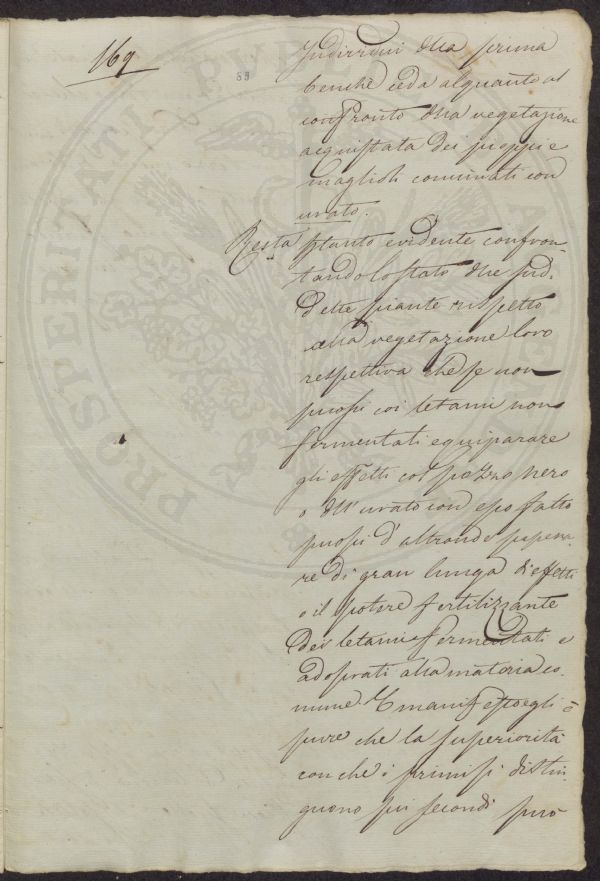 169
89
Indirizzai della prima
benchè ceda alquanto al
confronto della vegetazione
acquistata dei pioppi e
maglioli concimati con
urato.
Resta pertanto evidente confron-
tando lo stato delle sud-
dette piante rispetto
alla vegetazione loro
respettiva che se non
puossi coi letami non
fermentati equiparare
gli effetti col pozzo nero
o dell' urato con esso fatto
puossi d'altronde supera-
re di gran lunga l'effetto
e il potere fertilizzante
dei letami fermentati e
adoprati alla maniera co-
mune. E manifesto egli è
pure che la superiorità
con che i primi si distin-
guono sui secondi può
PROSPERITATI PUBLICAE